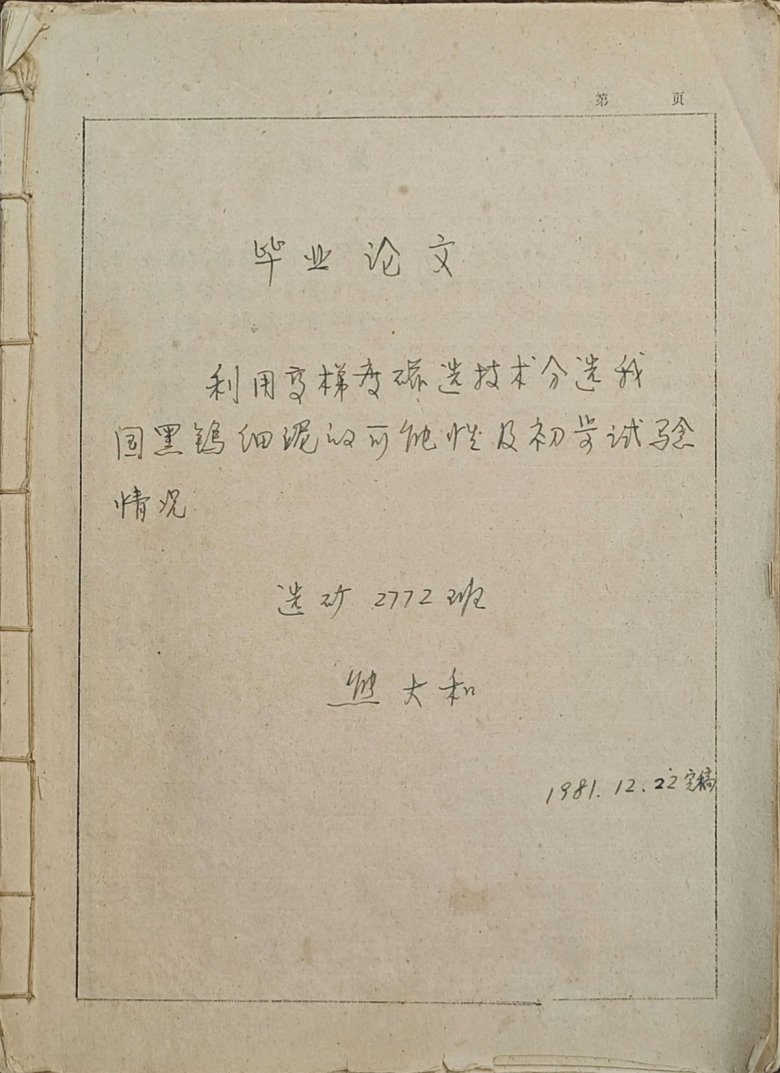 第 页
毕业论文
利用高梯度磁选技术分选我
国黑钨细泥的可能性及初步试验
情况
选矿2772班
熊大和
1981.12.22定稿